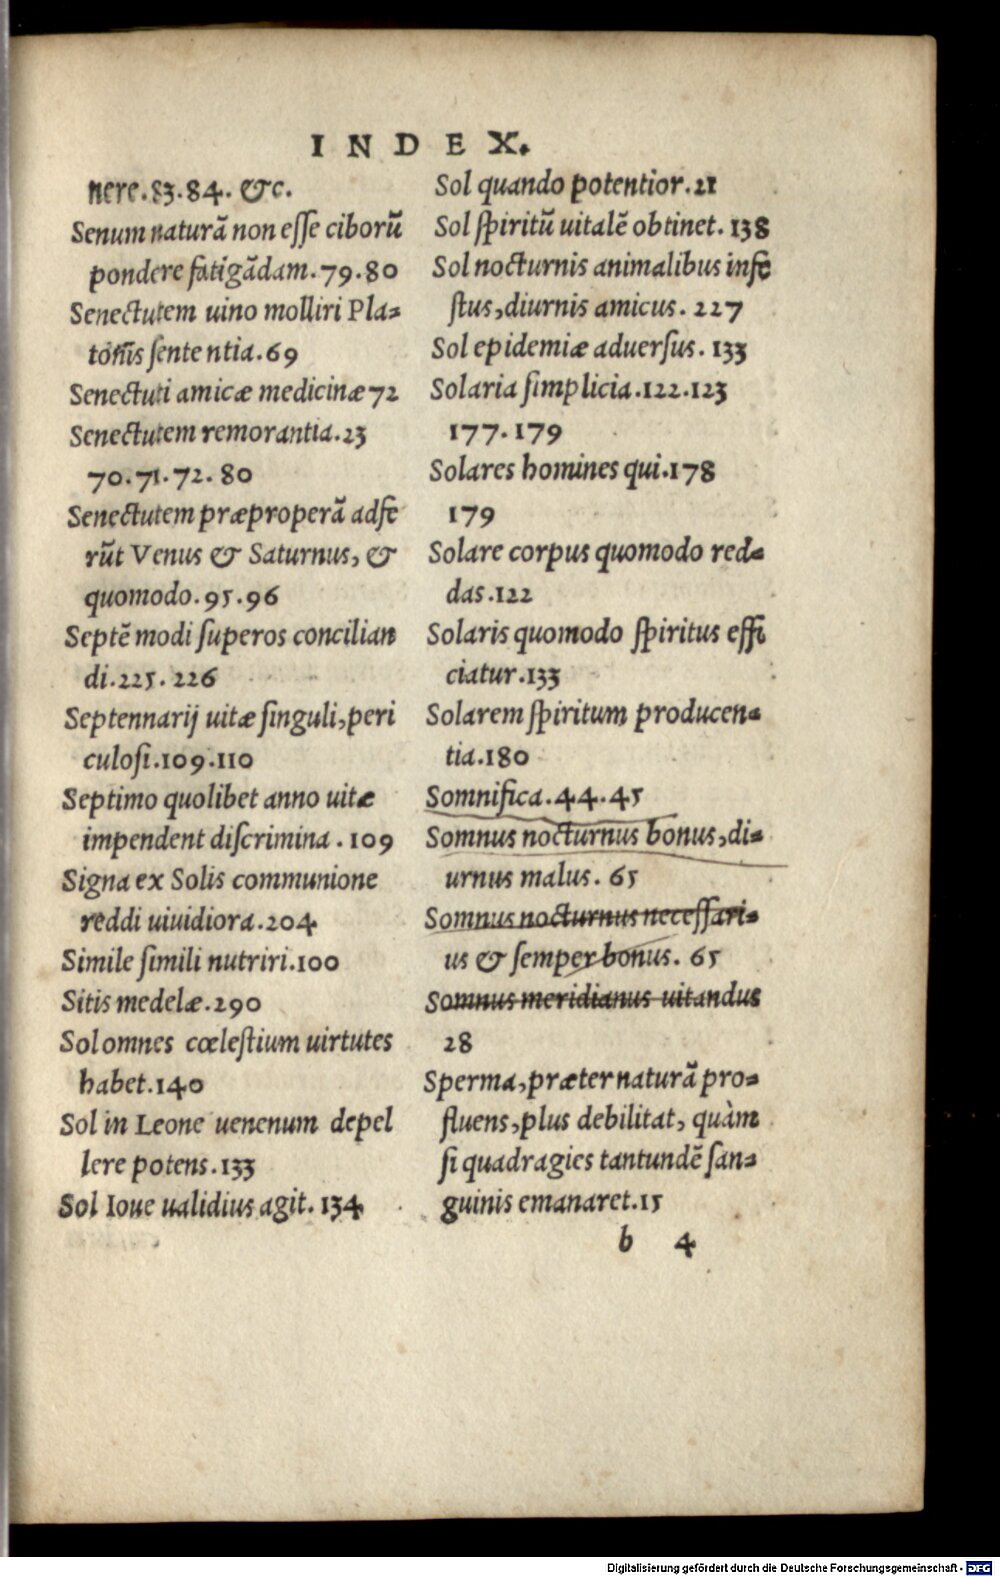 INDEX.
nere.83.84. &c.
Senum naturã non eſſe ciborũ
pondere fatigãdam.79.80
Senectutem uino molliri Pla-
tonis ſententia.69
Senectuti amicæ medicinæ 72
Senectutem remorantia.23
70.71.72.80
Senectutem præproperã adfe
rũt Venus & Saturnus, &
quomodo.95.96
Septẽ modi ſuperos concilian
di.225.226
Septennarij uitæ ſinguli,peri
culoſi.109.110
Septimo quolibet anno uitæ
impendent diſcrimina.109
Signa ex Solis communione
reddi uiuidiora.204
Simile ſimili nutriri.100
Sitis medelæ.290
Sol omnes cœleſtium uirtutes
habet.140
Sol in Leone uenenum depel
lere potens.133
Sol Ioue ualidius agit.134
Sol quando potentior.21
Sol ſpiritũ uitalẽ obtinet.138
Sol nocturnis animalibus infe
ſtus,diurnis amicus.227
Sol epidemiæ aduerſus.133
Solaria ſimplicia.122.123
177.179
Solares homines qui.178
179
Solare corpus quomodo red-
das.122
Solaris quomodo ſpiritus effi
ciatur.133
Solarem ſpiritum producen-
tia.180
Somnifica.44.45
Somnus nocturnus bonus,di-
urnus malus.65
Somnus nocturnus neceſſari-
us & ſemper bonus.65
Somnus meridianus uitandus
28
Sperma,præter naturã pro-
fluens,plus debilitat, quàm
ſi quadragies tantundẽ ſan-
guinis emanaret.15
b 4
Digitalisierung gefördert durch die Deutsche Forschungsgemeinschaft - DFG